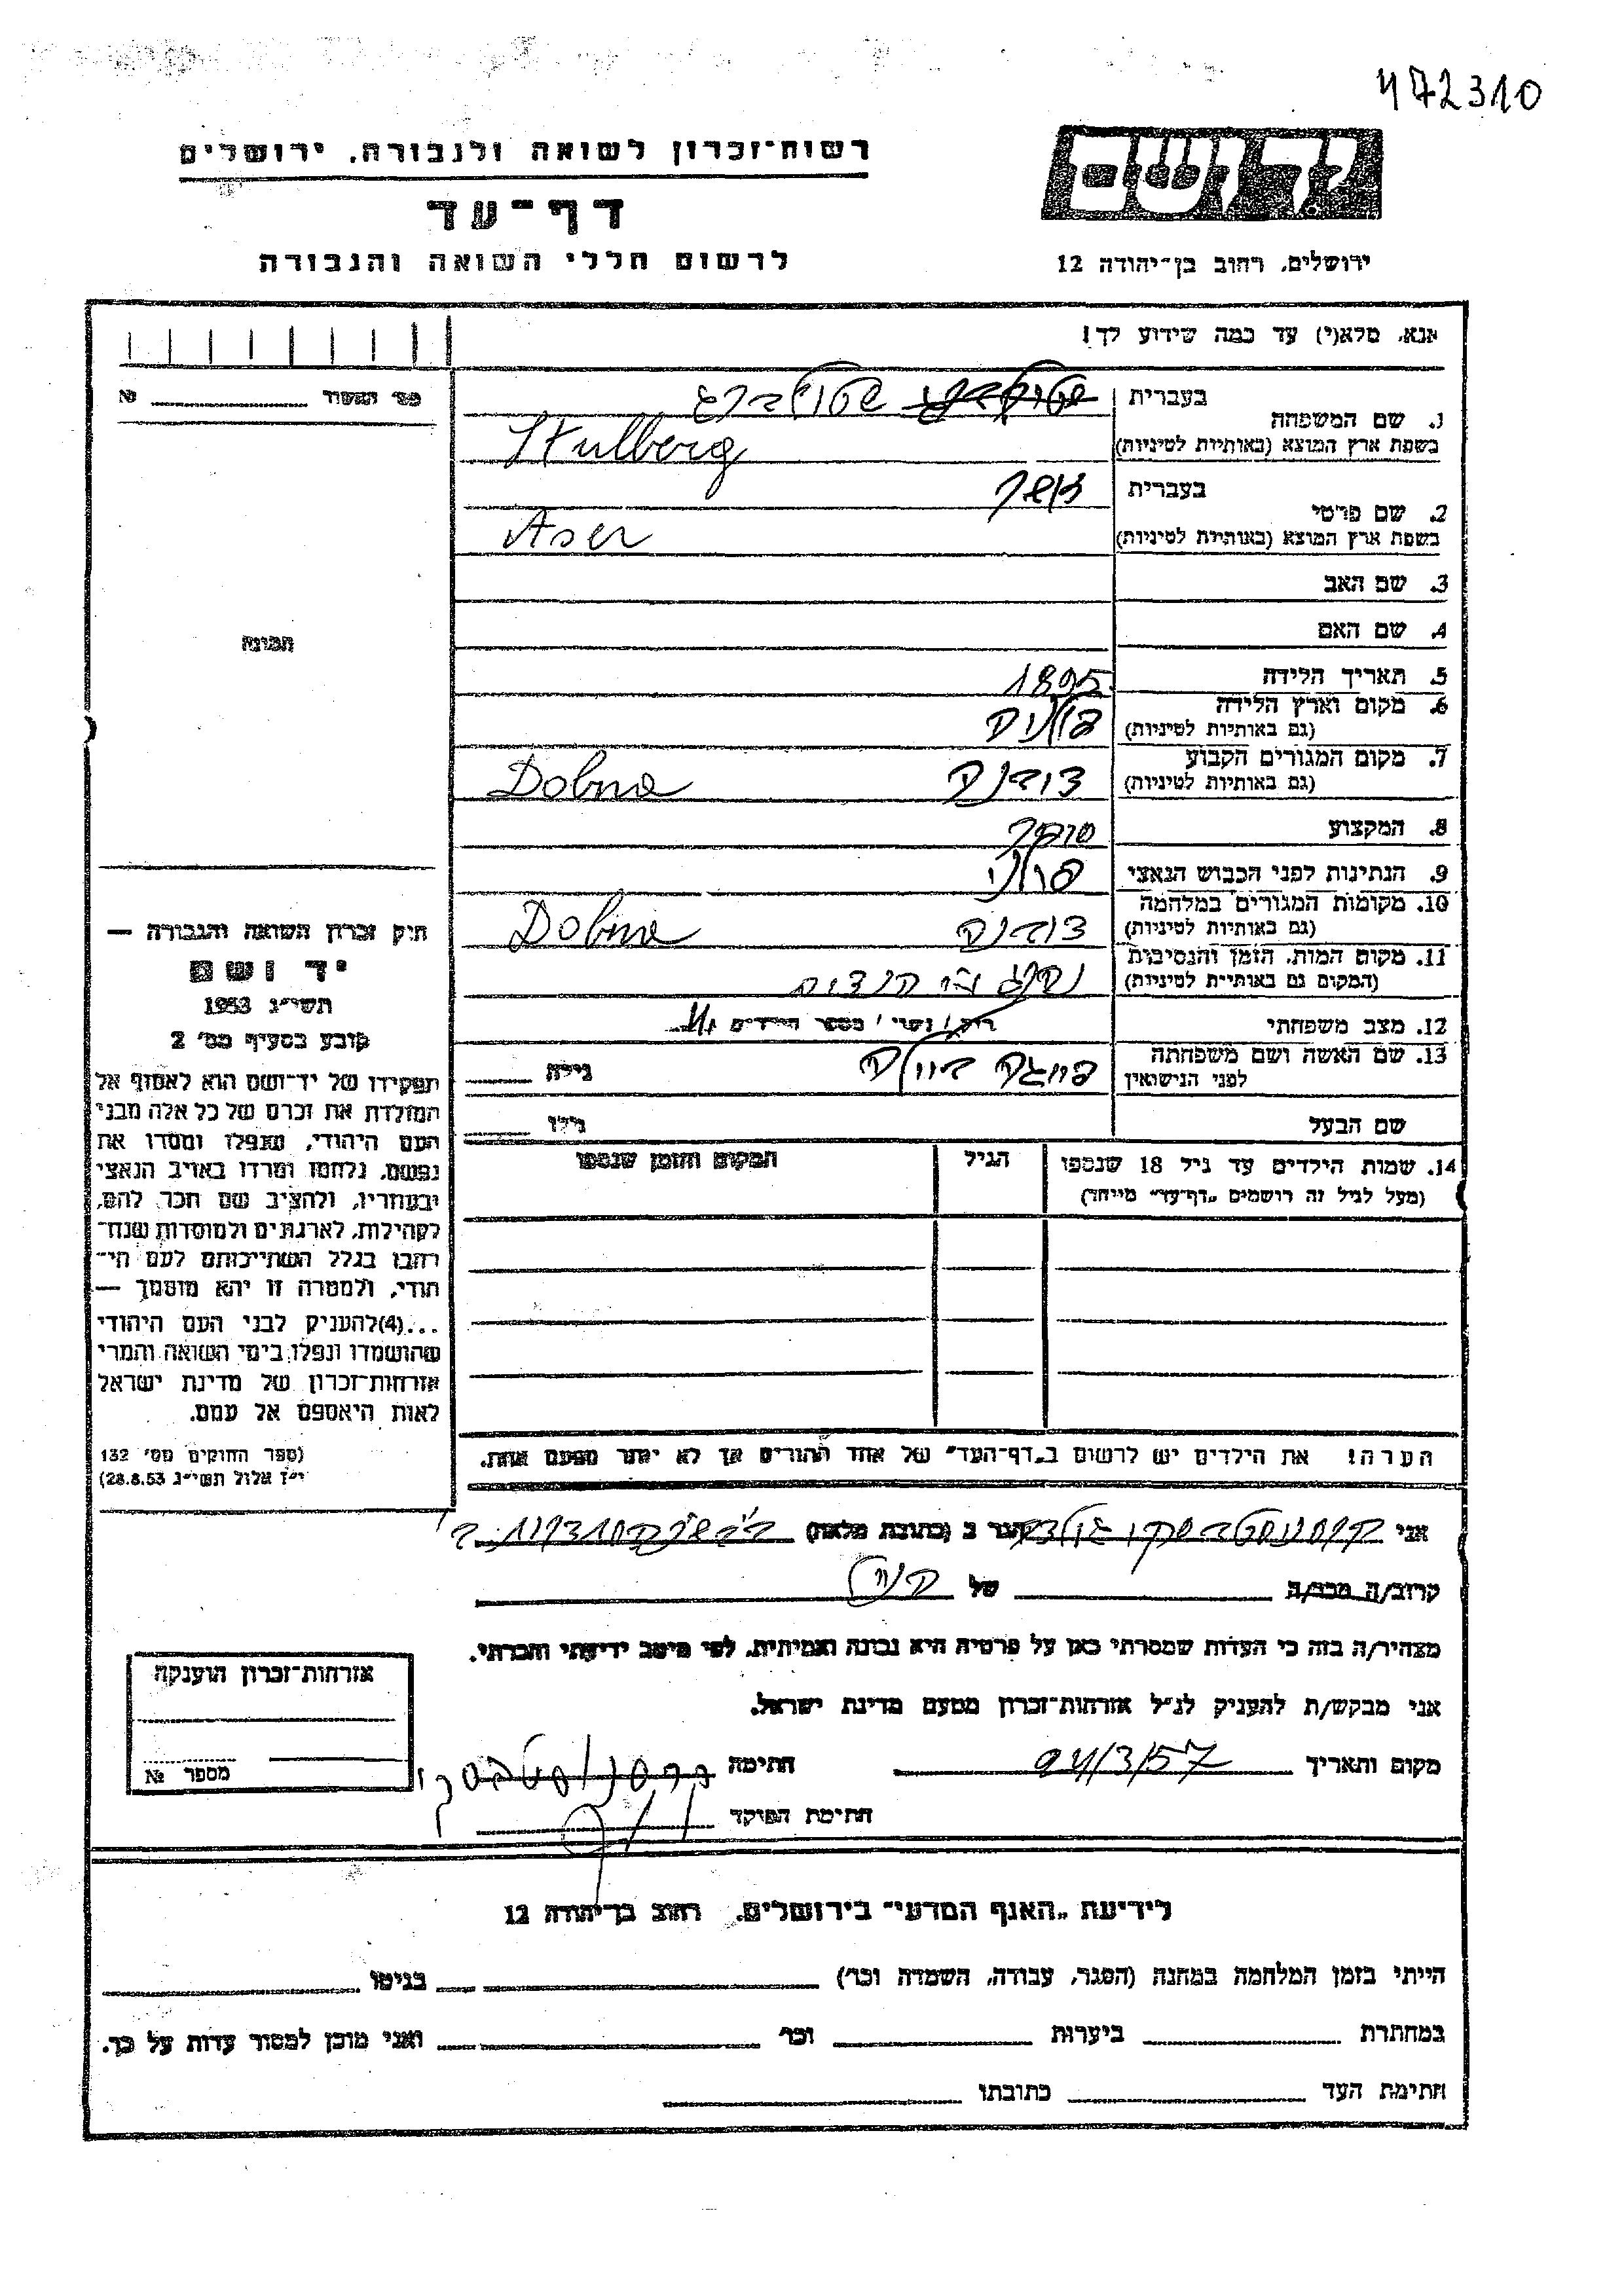 472310
רשות־זכרון לשואה ולגבורה, ירושלים
יד ושם
דף־עד
לרשום חללי השואה והגבורה
ירושלים, רחוב בן־יהודה 12
אנא, מלא(י) עד כמה שידוע לך!
מס׳ האשור № ______
1. שם המשפחה בעברית שטולברג
בשפת ארץ המוצא (באותיות לטיניות) Stulberg
2. שם פרטי בעברית אשר
בשפת ארץ המוצא (באותיות לטיניות) Aser
3. שם האב
4. שם האם
תמונה
5. תאריך הלידה 1895
6. מקום וארץ הלידה
(גם באותיות לטיניות)
7. מקום המגורים הקבוע דובנה Dobne
(גם באותיות לטיניות)
8. המקצוע סוחר
9. הנתינות לפני הכבוש הנאצי פולני
10. מקומות המגורים במלחמה דובנה Dobne
(גם באותיות לטיניות)
11. מקום המות, הזמן והנסיבות
(המקום גם באותיות לטיניות)
12. מצב משפחתי רוק / נשוי / מספר הילדים
13. שם האשה ושם משפחתה
לפני הנישואין גילה ____
שם הבעל גילו ____
14. שמות הילדים עד גיל 18 שנספו הגיל המקום והזמן שנספו
(מעל לגיל זה רושמים „דף־עד״ מיוחד)
הערה! את הילדים יש לרשום ב„דף־העד״ של אחד ההורים אך לא יותר מפעם אחת.
חוק זכרון השואה והגבורה —
יד ושם
תשי״ג 1953
קובע בסעיף מס׳ 2
תפקידו של יד־ושם הוא לאסוף אל
המולדת את זכרם של כל אלה מבני
העם היהודי, שנפלו ומסרו את
נפשם, נלחמו ומרדו באויב הנאצי
ובעוזריו, ולהציב שם וזכר להם,
לקהילות, לארגונים ולמוסדות שנח־
רבו בגלל השתייכותם לעם הי־
הודי, ולמטרה זו יהא מוסמך —
...(4)להעניק לבני העם היהודי
שהושמדו ונפלו בימי השואה והמרי
אזרחות־זכרון של מדינת ישראל
לאות היאספם אל עמם.
(ספר החוקים מס׳ 132
י״ז אלול תשי״ג 28.8.53)
אני הגר ב (כתובת מלאה)
קרוב/ה מכר/ה של
מצהיר/ה בזה כי העדות שמסרתי כאן על פרטיה היא נכונה ואמיתית, לפי מיטב ידיעתי והכרתי.
אני מבקש/ת להעניק לנ״ל אזרחות־זכרון מטעם מדינת ישראל.
מקום ותאריך 24/3/57 חתימה
חתימת הפוקד
אזרחות־זכרון הוענקה
מספר №
לידיעת „האגף המדעי״ בירושלים, רחוב בן־יהודה 12
הייתי בזמן המלחמה במחנה (הסגר, עבודה, השמדה וכו׳) בגיטו
במחתרת ביערות וכו׳ ואני מוכן למסור עדות על כך.
חתימת העד כתובתו